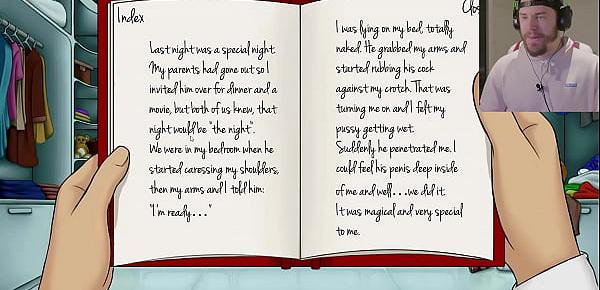 Index
Last night was a special night.
My parents had gone out so I
invited him over for dinner and a
movie, but both of us knew, that
night would be "the night".
We were in my bedroom when he
started caressing my shoulders,
then my arms and I told him:
"I'm ready..."
Clos
I was lying on my bed, totally
naked. He grabbed my arms and
started rubbing his cock
against my crotch. That was
turning me on and I felt my
pussy getting wet.
Suddenly he penetrated me. I
could feel his penis deep inside
of me and well...we did it.
It was magical and very special
to me.